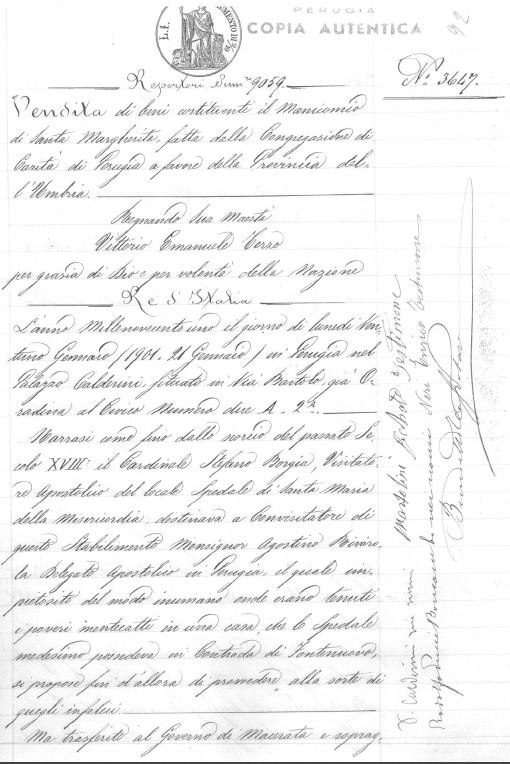 PERUGIA
COPIA AUTENTICA
92
Repertori Num.ro 9059.
N.° 3647.
Vendita di beni costituenti il Manicomio
di Santa Margherita, fatta dalla Congregazione di
Carità di Perugia a favore della Provincia del-
l'Umbria.
Regnando Sua Maestà
Vittorio Emanuele Terzo
per grazia di Dio e per volontà della Nazione
Re d'Italia
L'anno Millenovecento uno il giorno di lunedì Ven-
tuno Gennaio /1901. 21 Gennaio/ in Perugia nel
Palazzo Calderini, situato in Via Bartolo, già O-
radina al Civico Numero due A. 2a.
Narrasi come fino dallo scorcio del passato Se-
colo XVIII: il Cardinale Stefano Borgia, Visitato-
re Apostolico del locale Spedale di Santa Maria
della Misericordia, destinava a Convisitatore di
questo Stabilimento Monsignor Agostino Rivaro-
la Delegato Apostolico in Perugia, il quale im-
pietosito del modo inumano onde erano tenuti
i poveri mentecatti in una casa, che lo Spedale
medesimo possedeva in Contrada di Fontenuovo,
si propose fin d'allora di provvedere alla sorte di
quegli infelici.
Ma trasferito al Governo di Macerata e soprag-
S. Calderini nei nomi
Testimone
Neri Enrico testimone